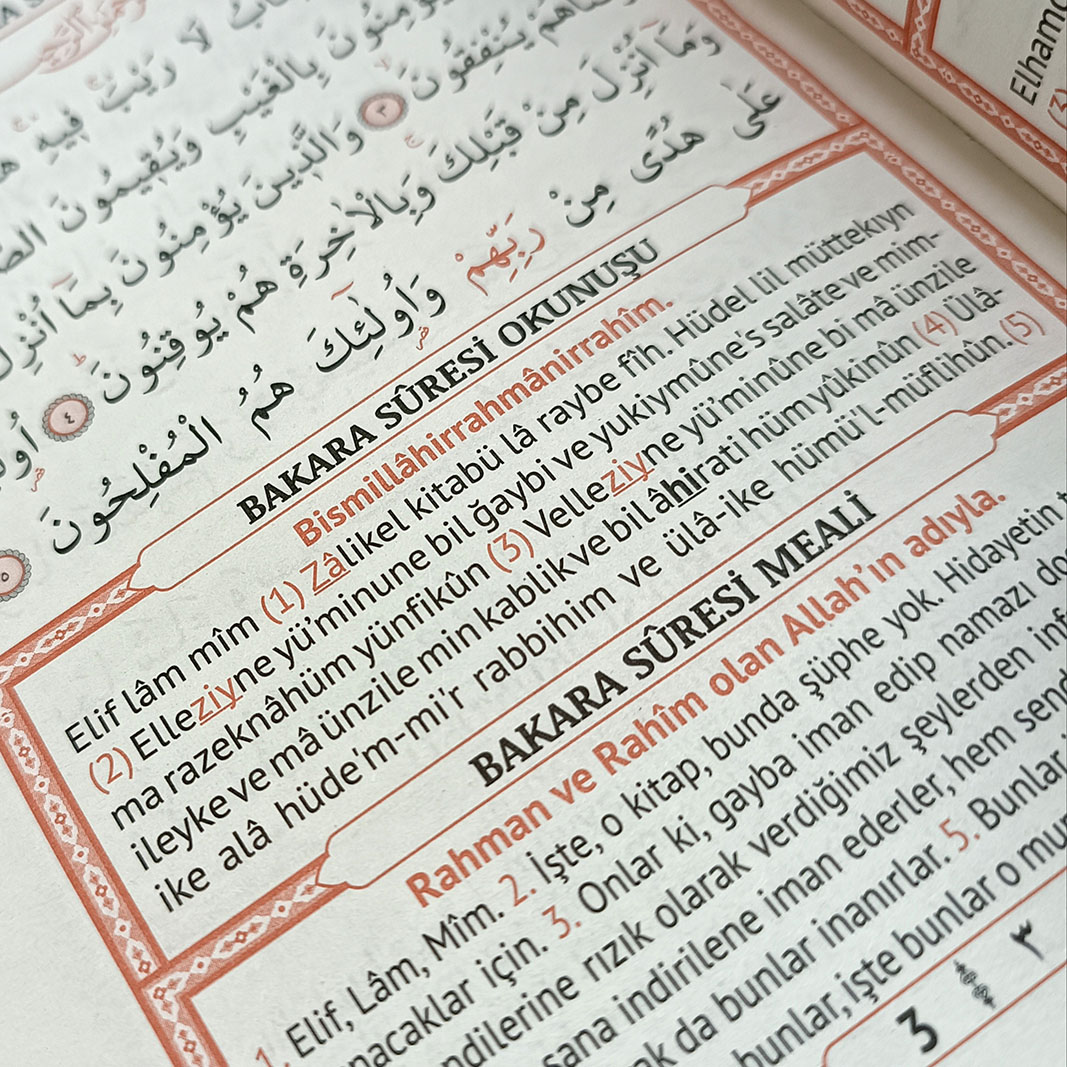 لَا رَيْبَ فِيهِ
يُؤْمِنُونَ بِالْغَيْبِ وَيُقِيمُونَ
يُنْفِقُونَ ٣ وَالَّذِينَ يُؤْمِنُونَ بِمَا أُنْزِلَ
وَمَا أُنْزِلَ مِنْ قَبْلِكَ وَبِالْاٰخِرَةِ هُمْ يُوقِنُونَ ٤
عَلٰى هُدًى مِنْ رَبِّهِمْ وَاُولٰئِكَ هُمُ الْمُفْلِحُونَ ٥
BAKARA SÛRESİ OKUNUŞU
Bismillâhirrahmânirrahîm.
Elif lâm mîm (1) Zâlikel kitabü lâ raybe fîh. Hüdel lil müttekıyn
(2) Elleziyne yü'minune bil ğaybi ve yukiymûne's salâte ve mim-
ma razeknâhüm yünfikûn (3) Velleziyne yü'minûne bi mâ ünzile
ileyke ve mâ ünzile min kablik ve bil âhirati hüm yûkinûn (4) Ülâ-
ike alâ hüde'm-mi'r rabbihim ve ülâ-ike hümü'l-müflihûn. (5)
BAKARA SÛRESİ MEALİ
Rahman ve Rahîm olan Allah'ın adıyla.
1. Elif, Lâm, Mîm. 2. İşte, o kitap, bunda şüphe yok. Hidayetin
için. 3. Onlar ki, gayba iman edip namazı
rızık olarak verdiğimiz şeylerden
sana indirilene iman ederler, hem
da bunlar inanırlar. 5. Bunlar
bunlar, işte bunlar o
3 ٣